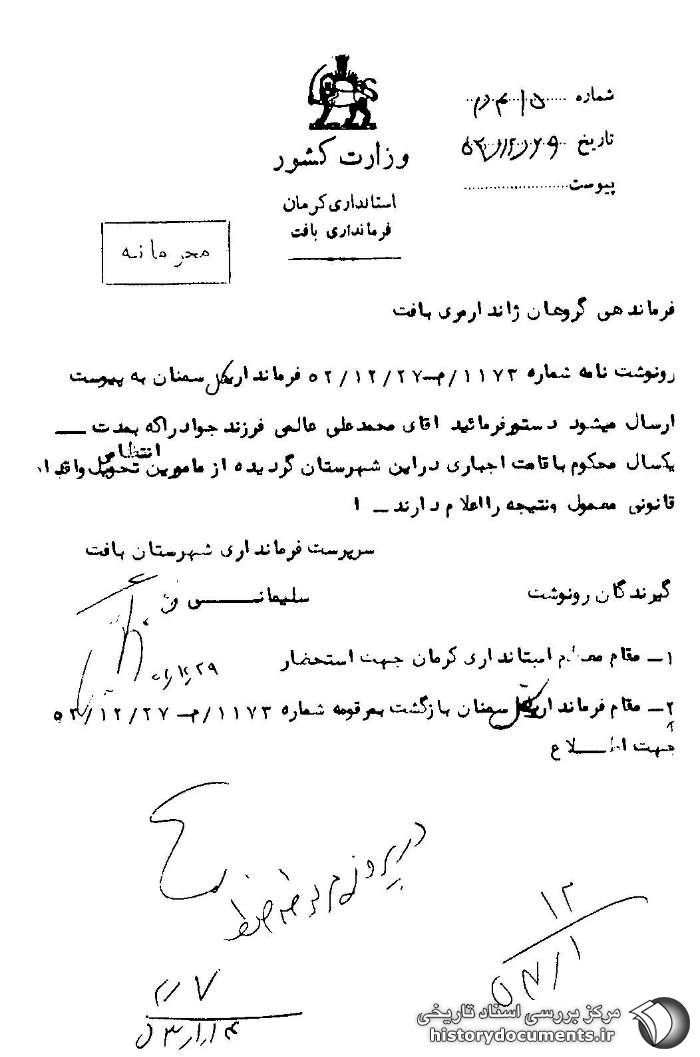 شماره ۴۱۵/م
تاریخ ۵۲/۱۲/۲۹
پیوست
وزارت کشور
استانداری کرمان
فرمانداری بافت
محرمانه
فرماندهی گروهان ژاندارمری بافت
رونوشت نامه شماره ۱۱۷۳/م-۵۲/۱۲/۲۷ فرمانداریکل سمنان به پیوست
ارسال میشود دستورفرمائید اقای محمدعلی عالمی فرزند جوادراکه بمدت ــ
یکسال محکوم باقامت اجباری دراین شهرستان گردیده از مامورین انتظامی تحویل واقدام
قانونی معمول ونتیجه رااعلام دارند ــ ا
سرپرست فرمانداری شهرستان بافت
سلیمانی
گیرندگان رونوشت
۱ــ مقام معظم استانداری کرمان جهت استحضار
۲ــ مقام فرمانداریکل سمنان بازگشت بمرقومه شماره ۱۱۷۳/م-۵۲/۱۲/۲۷
جهت اطلاع
در پرونده
ضبط
۱۲
۵۳/۱
۷
۵۳/۱/۴
مرکز بررسی اسناد تاریخی
historydocuments.ir